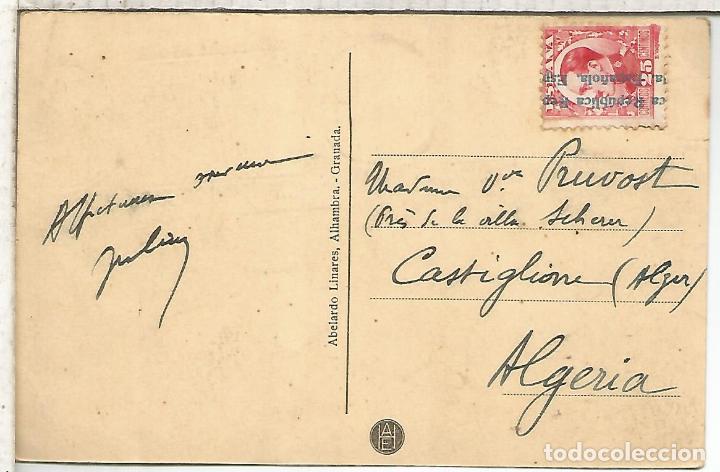 ESPAÑA
25
la. Española. Esp
ca República Rep
Abelardo Linares, Alhambra. - Granada.
Madame Vve Pruvost
(Près de la villa Scherer)
Castiglione (Alger)
Algeria
todocoleccion